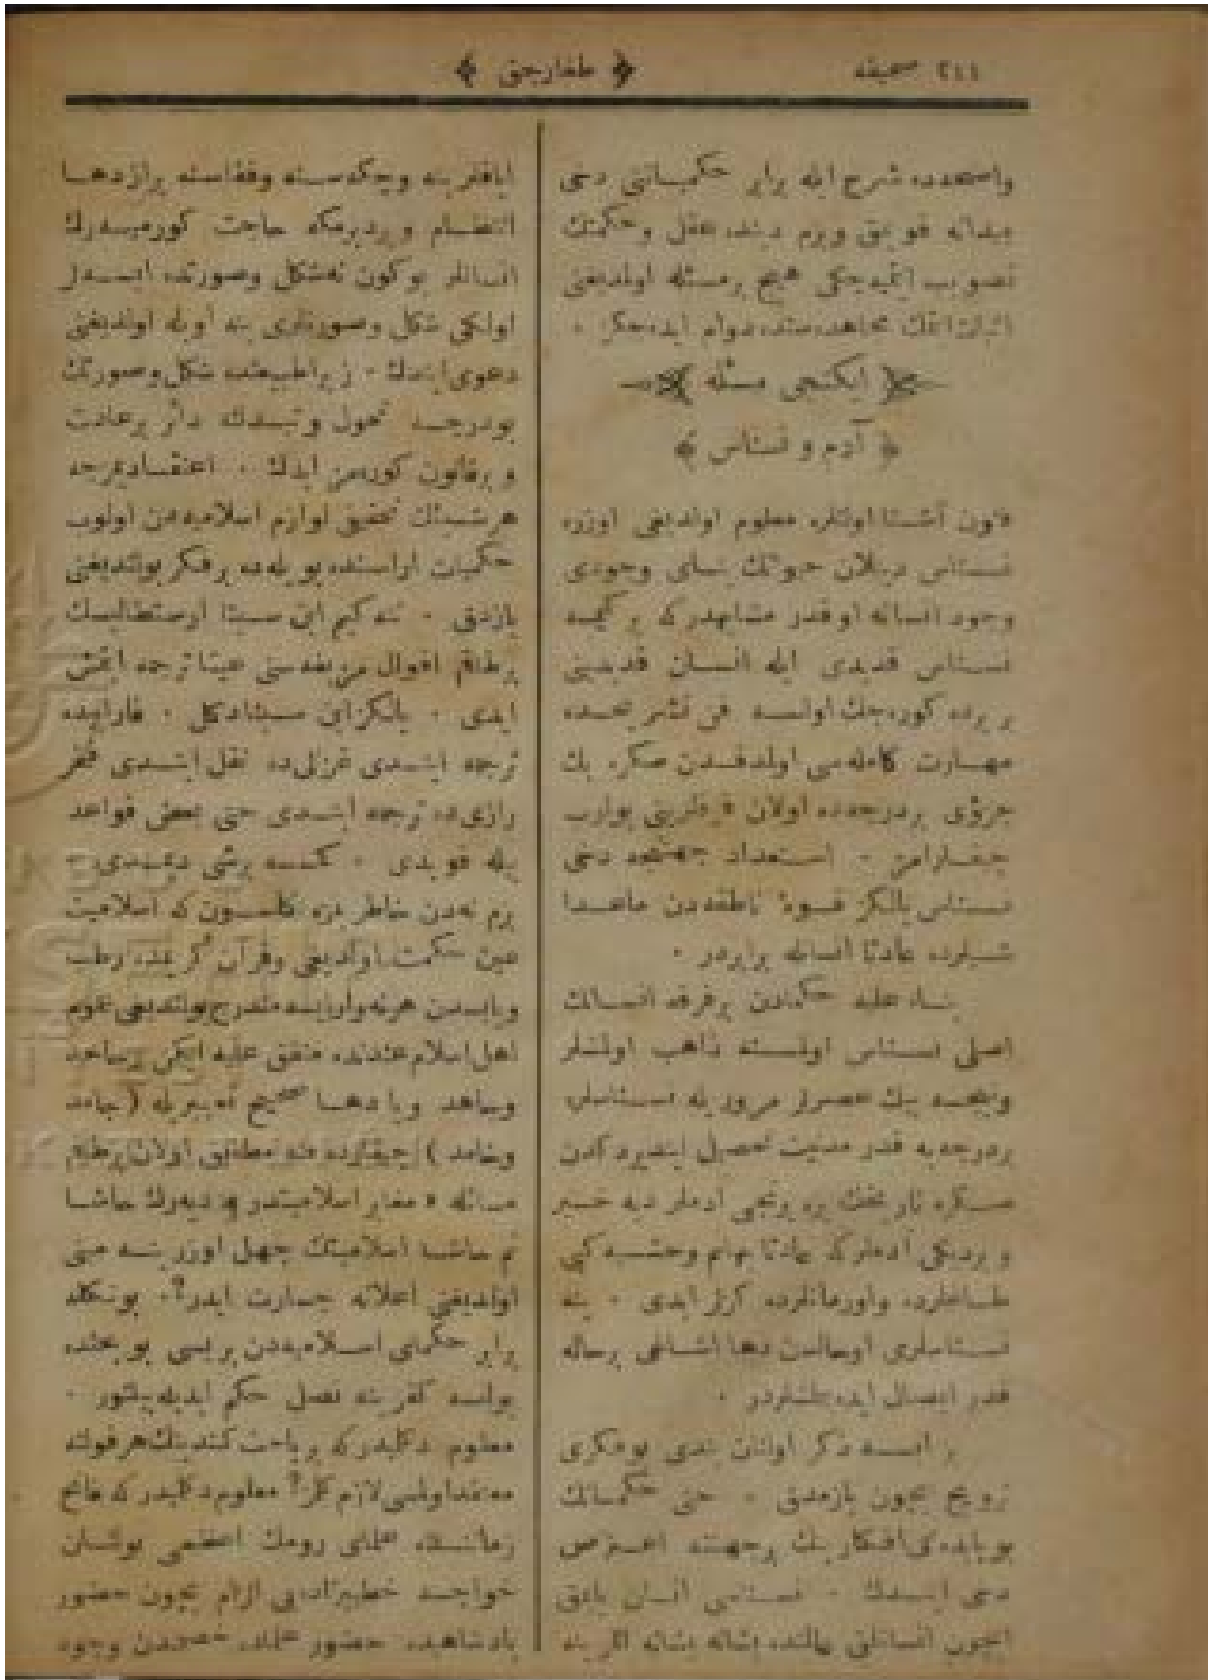 ٢١١ صحیفه
﴿ طغارجق ﴾
واسعه‌ده شرح ایله برابر حکمیاتی دخی
میدانه قویق ویرم دیند، عقل و حکمتك
تصویب ایتمیه‌جکی هیچ برمسئله اولدیغنی
اثبات ایتمك مجاهده‌سنده دوام ایده‌جکز .
﴿ ایکنجی مسئله ﴾
﴿ آدم و نسناس ﴾
فنون آشنا اولنلره معلوم اولدیغی اوزره
نسناس دینلان حیوانك بنای وجودی
وجود انسانه اوقدر مشابهدرکه بر کیمسه
نسناس قدیدی ایله انسان قدیدینی
بر یرده کوره‌جك اولسه فن تشریحده
مهارت کامله‌سی اولدقدن صکره پك
جزؤی بردرجه‌ده اولان فرقلرینی بولوب
چیقارامز . استعداد جهتنجه دخی
نسناس یالکز قوۀ ناطقه‌دن ماعدا
شیلرده عادتا انسانله برابردر .
بناء علیه حکمادن برفرقه انسانك
اصلی نسناس اولمسنه ذاهب اولمشلر
ونیجه بیك عصرلر مروریله نسناسلری
بردرجه‌یه قدر مدنیت تحصیل ایتدیردکدن
صکره تاریخك بزه برنجی آدملر دیه خبر
ویردیکی آدملرکه عادتا بهایم وحشیه کبی
طاغلرده واورمانلرده کزر ایدی . ینه
نسناسلری اوحالدن دها اشاغی برحاله
قدر ایصال ایده‌بلمشلردر .
بز ایسه ذکر اولنان بندی بوفکری
ترویج ایچون یازمدق . حتی حکمانك
بوبابده‌کی افکارینك برجهتنه اعتراض
دخی ایتدك . نسناسی انسان یاپمق
ایچون انسانلق عالمنده یشاته یشاته اللرینه
ایاقلرینه وچکه‌سنه وقفاسنه برازدها
انتظام ویردیرمکه حاجت کورمیه‌رك
انسانلر بوکون نه‌شکل وصورتده ایسه‌لر
اولکی شکل وصورتلری ینه اویله اولدیغنی
دعوی ایتدك . زیرا طبیعتده شکل وصورتك
بودرجه تحول وتبدلنه دائر برعادت
وبرقانون کوره‌من ایدك . اعتقادیمزجه
هرشیئك تحقیق لوازم اسلامیه‌دن اولوب
حکمیات اراسنده بویله‌ده برفکر بولندیغنی
یازدق . نته‌کیم ابن سینا ارسطالیسك
برطاقم اقوال مزیفه‌سنی عینا ترجمه ایتمش
ایدی . یالکز ابن سینادکل . فارابیده
ترجمه ایتدی غزالی‌ده نقل ایتدی فخر
رازی‌ده ترجمه ایتدی حتی بعض قواعد
بیله قویدی . کمسه برشی دیمدی
بزم نه‌دن خاطریمزه کلسون که اسلامیت
عین حکمت اولدیغی وقرآن کریمده رطب
ویابسدن هرنه‌وارایسه مندرج بولندیغی عموم
اهل اسلام عندنده متفق علیه ایکن برساجد
وساهد ویا دها صحیح تعبیریله (جامد
وخامد) چیقارده فنه مطابق اولان برطاقم
مسائله « مغایر اسلامیتدر » دیه‌رك حاشا
ثم حاشا اسلامیتك جهل اوزرینه مبنی
اولدیغنی اعلانه جسارت ایدر؟. بونکله
برابر حکمای اسلامیه‌دن بریسی بوبحثده
بولنسه کفرینه نصل حکم ایدیله‌بیلور .
معلوم دکلمیدرکه برباحث کندینك هرقولنه
معتقد اولمسی لازم کلمز؟ معلوم دکلمیدرکه فاتح
زماننده علمای رومك اعظمی بولنان
خواجه خطیبزاده‌یی الزام ایچون حضور
پادشاهیده حضور علماده خصمدن وجود